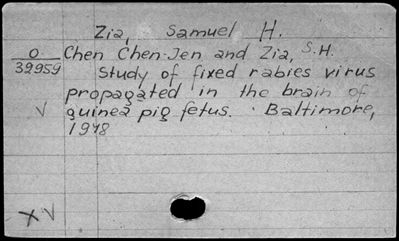 Zia, Samuel H.
O Chen Chen-Jen and Zia, S.H.
39959 Study of fixed rabies virus
propagated in the brain of
√ guinea pig fetus. Baltimore,
1948
X √